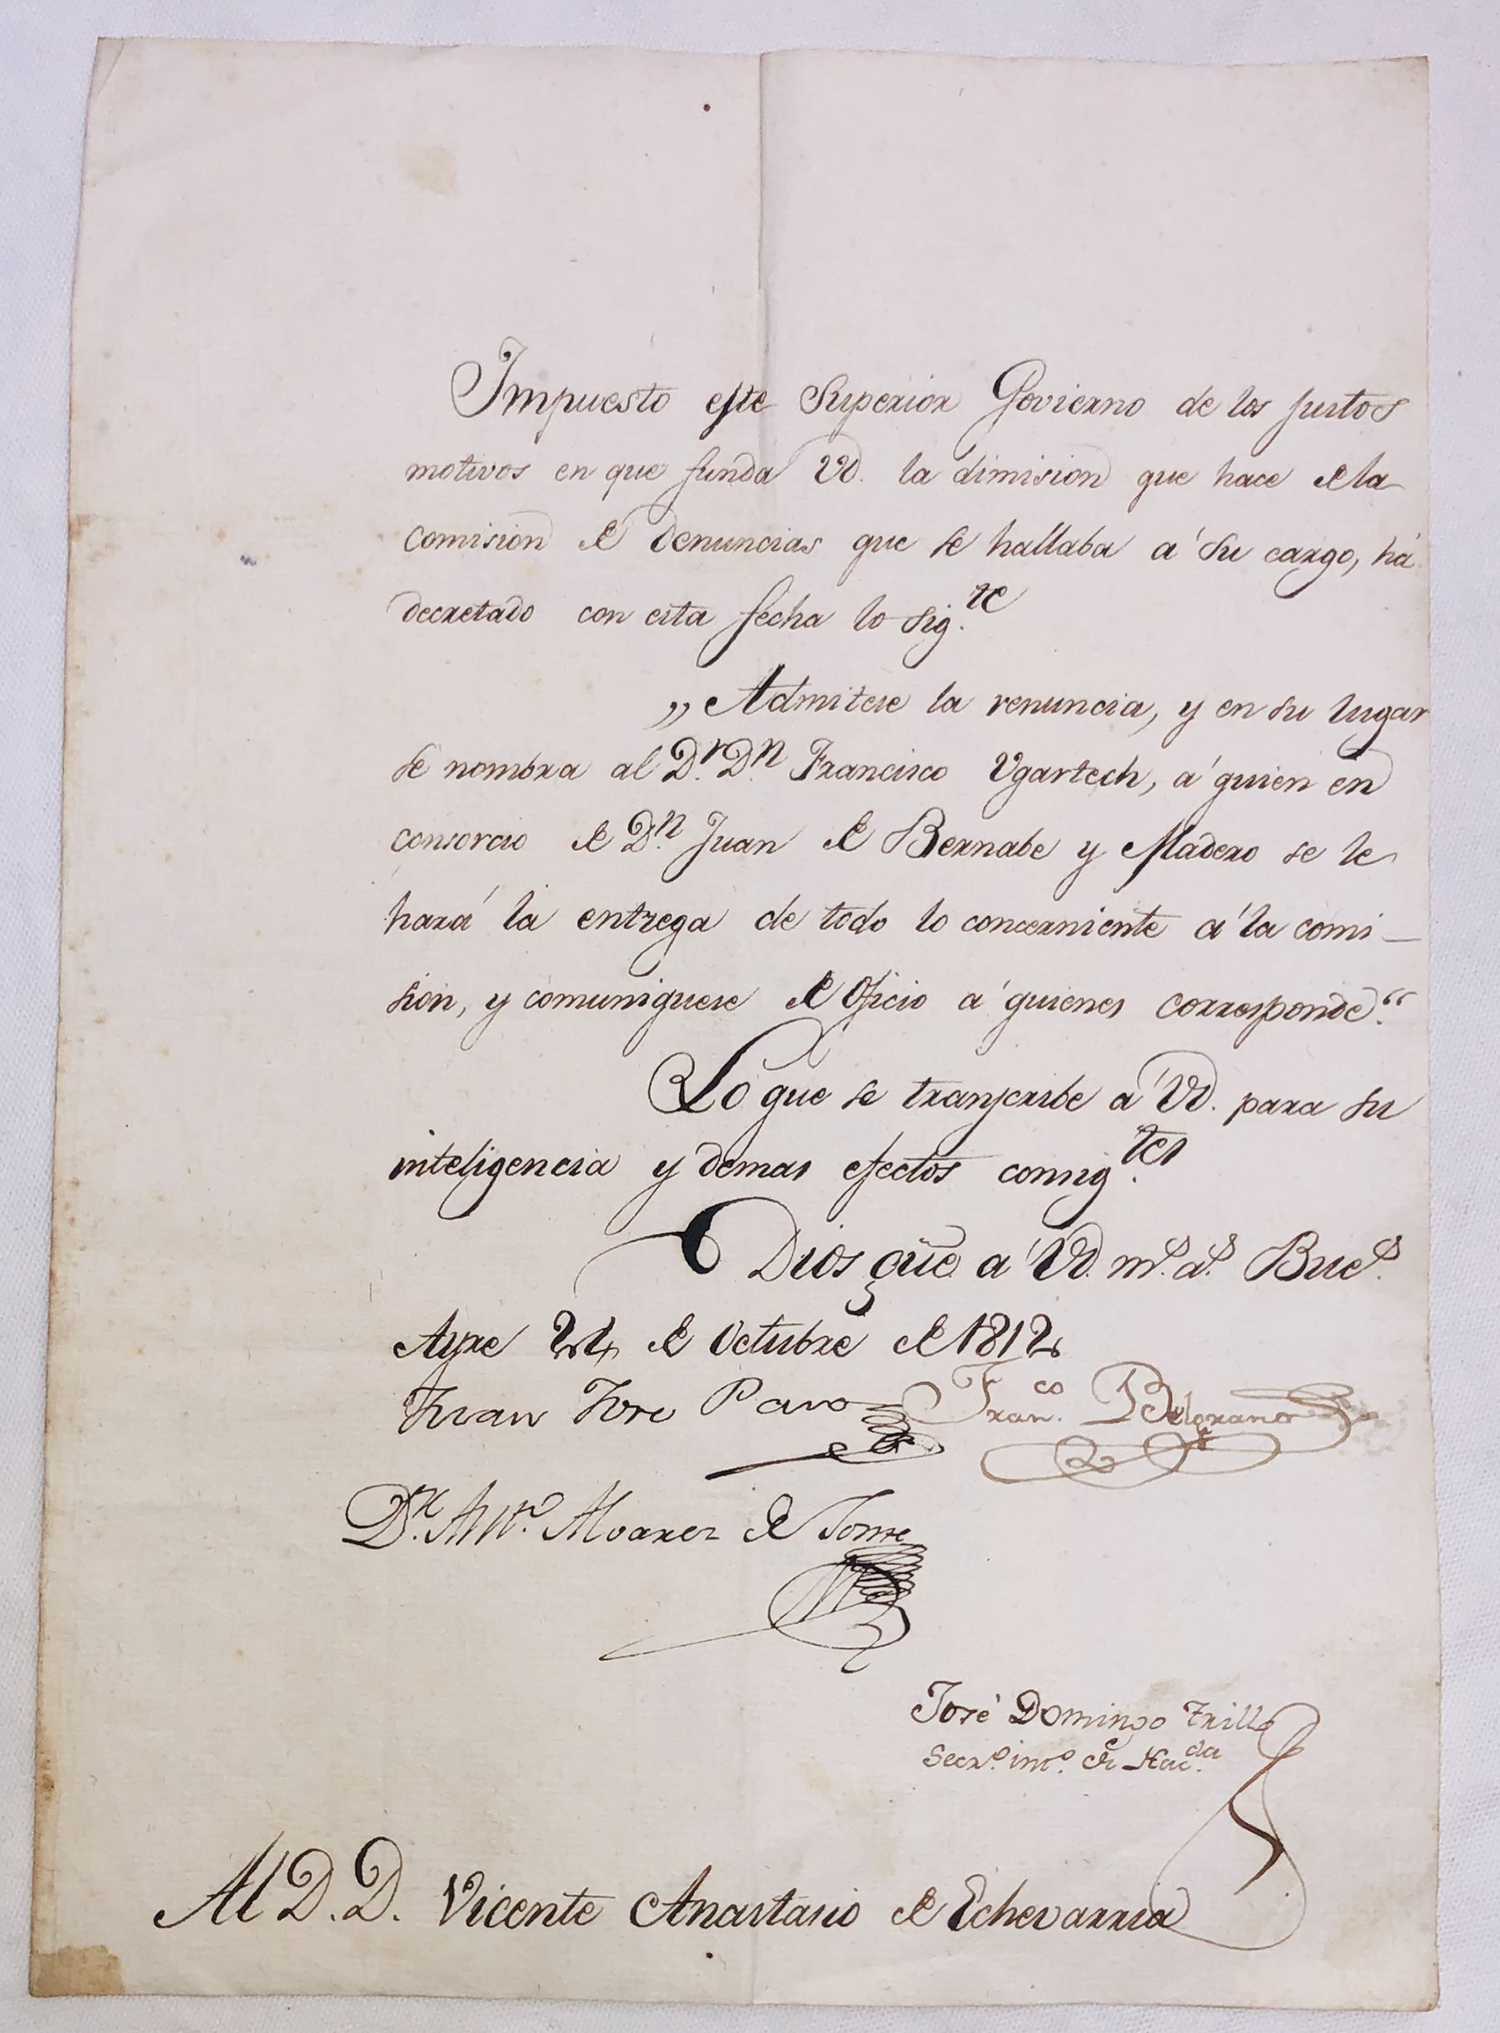 Impuesto este Superior Govierno de los justos
motivos en que funda Vd. la dimision que hace de la
comision de denuncias que se hallaba á su cargo, há
decretado con esta fecha lo sig.te
„Admitese la renuncia, y en su lugar
se nombra al D.r D.n Francisco Ugartech, á quien en
consorcio de D.n Juan de Bernabe y Madero se le
hará la entrega de todo lo concerniente á la comi-
sion, y comuniquese de Oficio á quienes corresponde."
Lo que se transcribe á Vd. para su
inteligencia y demas efectos consig.tes
Dios güe. á Vd. m.s a.s Bue.s
Ayre 24 de Octubre de 1812
Juan Jose Paso Fran.co Belgrano
D.r Ant.o Alvarez de Jonte
José Domingo Trillo
Secr.o int.o de Hac.da
Al D. D. Vicente Anastasio de Echevarria